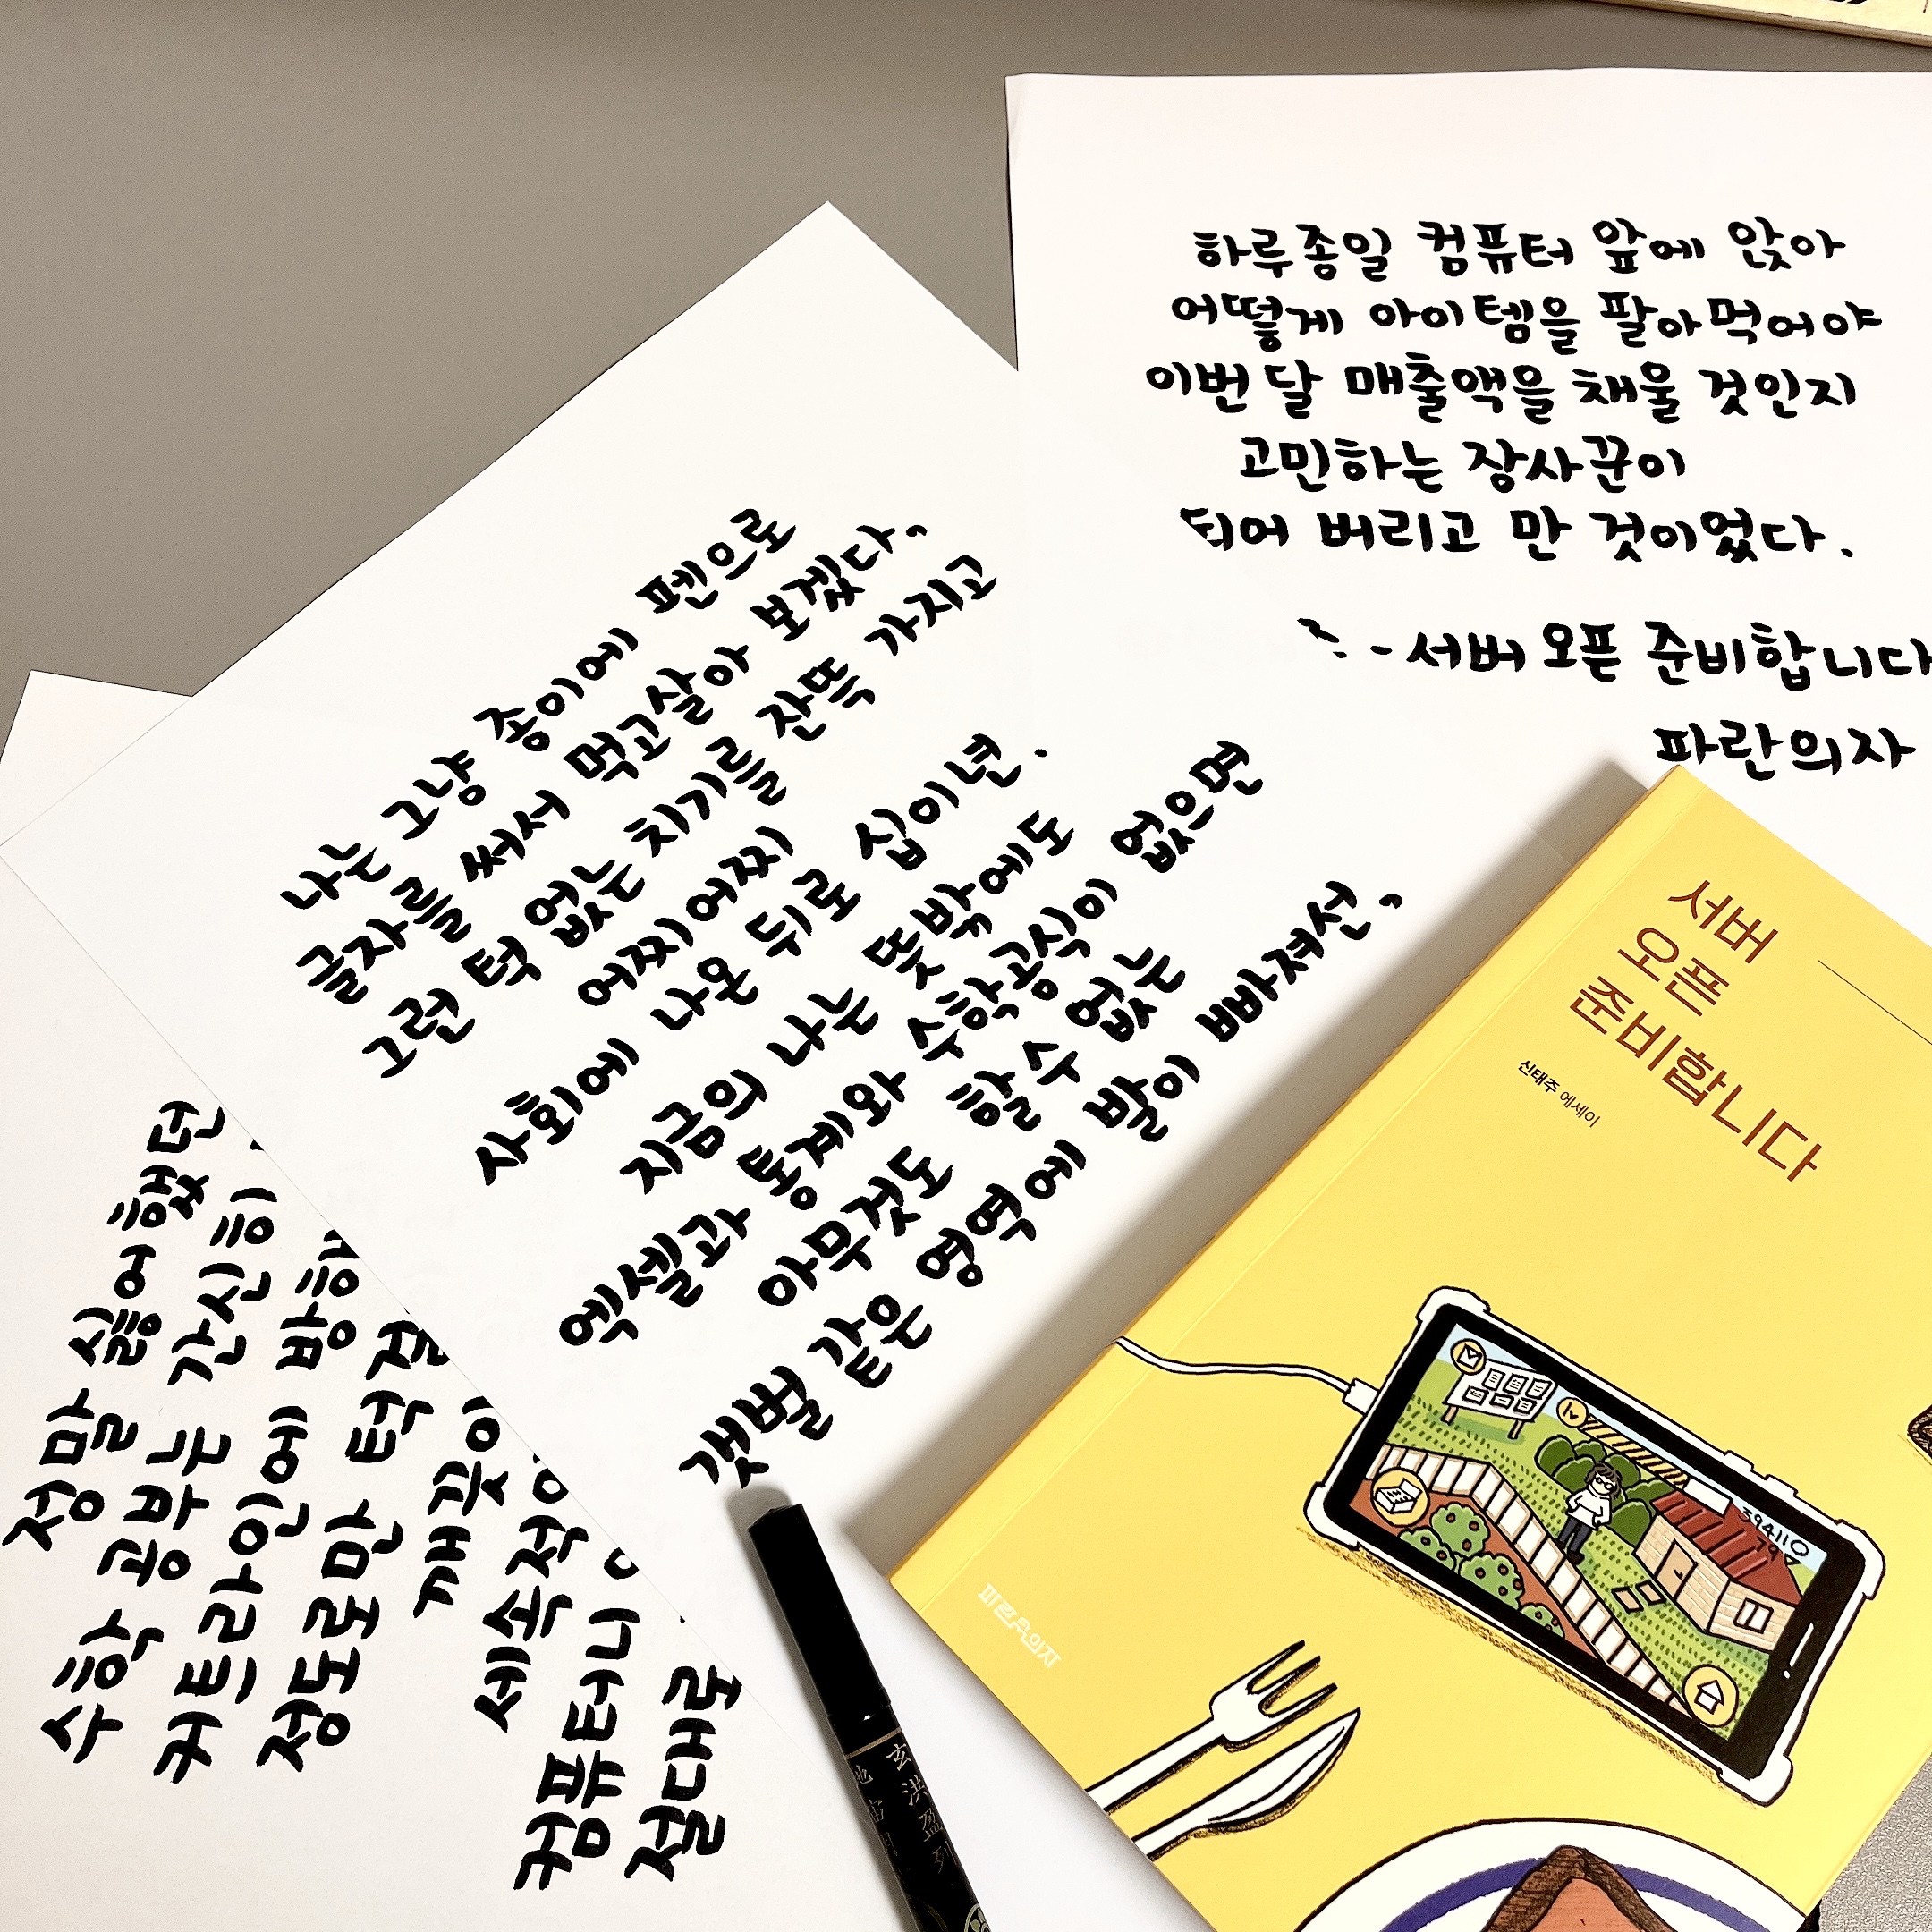 하루종일 컴퓨터 앞에 앉아
어떻게 아이템을 팔아먹어야
이번 달 매출액을 채울 것인지
고민하는 장사꾼이
되어 버리고 만 것이었다.
-서버 오픈 준비합니다
파란의자
나는 그냥 종이에 펜으로
글자를 써서 먹고살아 보겠다,
그런 턱 없는 치기를 잔뜩 가지고
어찌어찌
사회에 나온 뒤로 십이년.
지금의 나는 뜻밖에도
엑셀과 통계와 수학공식이 없으면
아무것도 할 수 없는
갯벌 같은 영역에 발이 빠져선,
정말 싫어했던
수학 공부는 간신히
커트라인에
정도로만 턱걸
깨끗이
세속적
컴퓨터니
절대로
서버
오픈
준비합니다
신태주 에세이
lv
394110
파란의자
玄洪盈列